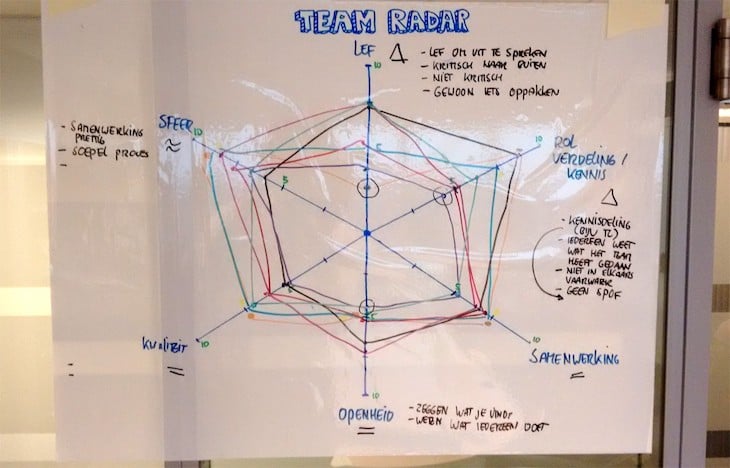 TEAM RADAR
LEF
10
- LEF OM UIT TE SPREKEN
- KRITISCH NAAR BUITEN
- NIET KRITISCH
- GEWOON IETS OPPAKKEN
SFEER
10
≈
- SAMENWERKING
PRETTIG
- SOEPEL PROCES
-
10
ROL
VERDELING /
KENNIS
- KENNISDELING
- IEDEREEN WEET
WAT HET TEAM
HEEFT GEDAAN
- NIET IN ELKAARS
VAARWATER
- GEEN SPOF
5
5
5
KWALITEIT
10
=
10
SAMENWERKING
=
10
OPENHEID
=
- ZEGGEN WAT JE VINDT
- WETEN WAT IEDEREEN DOET